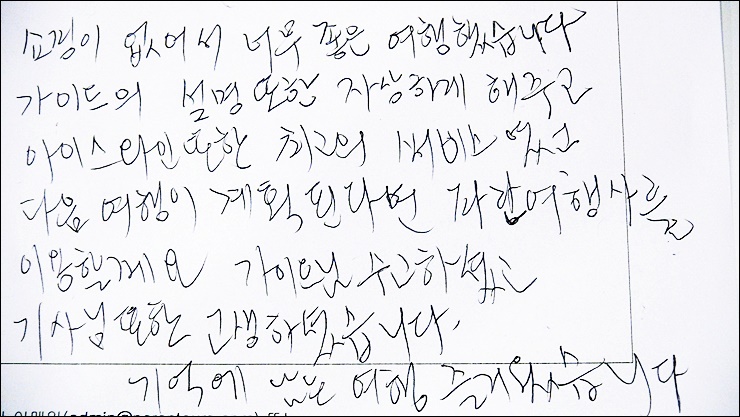 쇼핑이 없어서 너무 좋은 여행했습니다
가이드의 설명 또한 자상하게 해주고
아이스와인 또한 최고의 써비스 였고
다음 여행이 계획된다면 파란여행사를
이용할게요 가이드님 수고하셨고
기사님 또한 고생하셨습니다.
기억에 남는 여행 즐거웠습니다